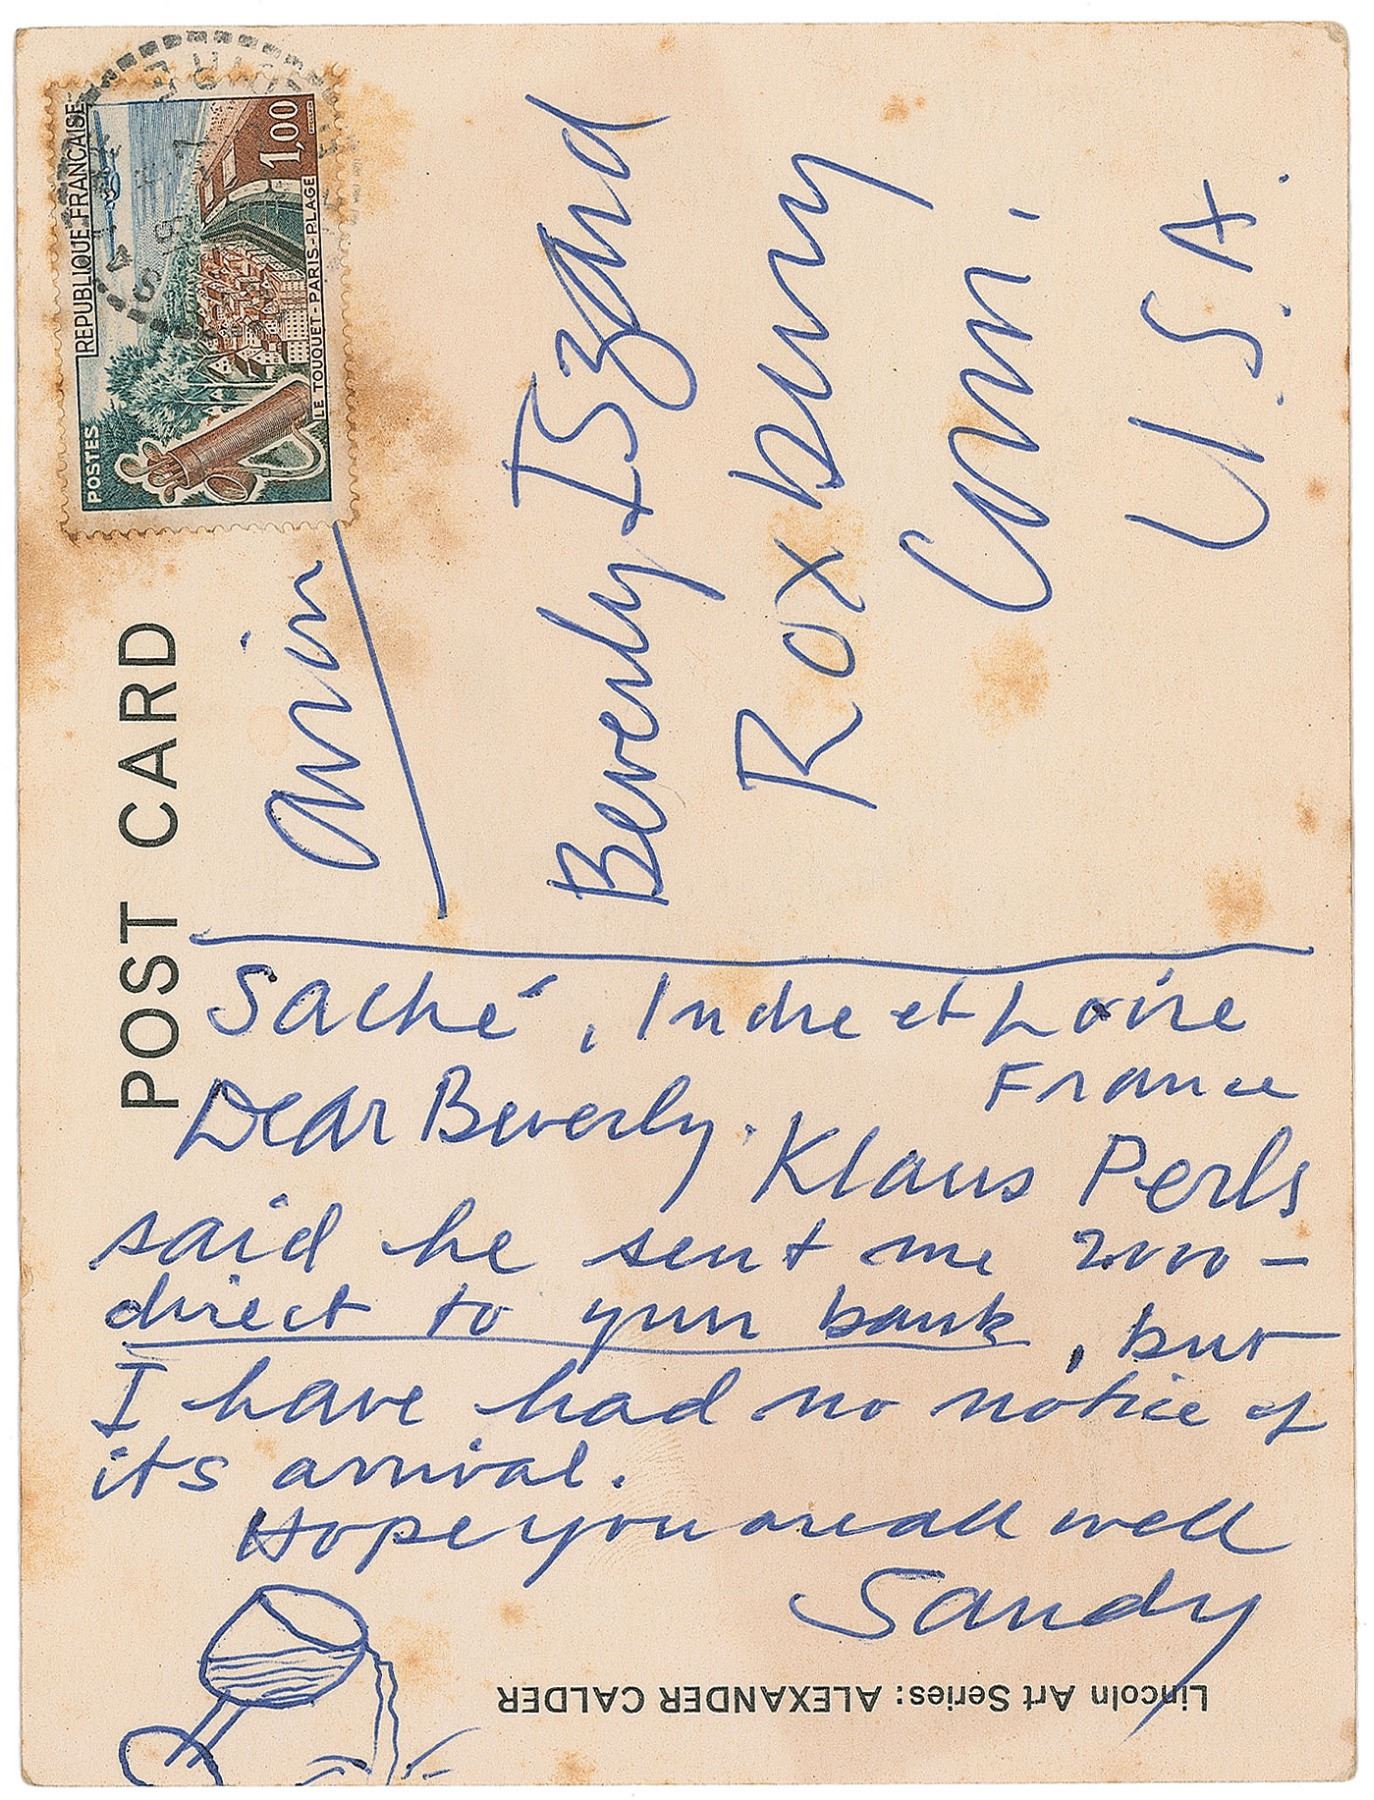 POSTES
REPUBLIQUE FRANCAISE
1,00
LE TOUQUET-PARIS-PLAGE
POST CARD
avion
Beverly + Izard
Roxbury
Conn.
U.S.A.
Saché, Indre et Loire
France
Dear Beverly. Klaus Perls
said he sent me 2000 —
direct to your bank, but
I have had no notice of
its arrival.
Hope you are all well
Sandy
Lincoln Art Series: ALEXANDER CALDER